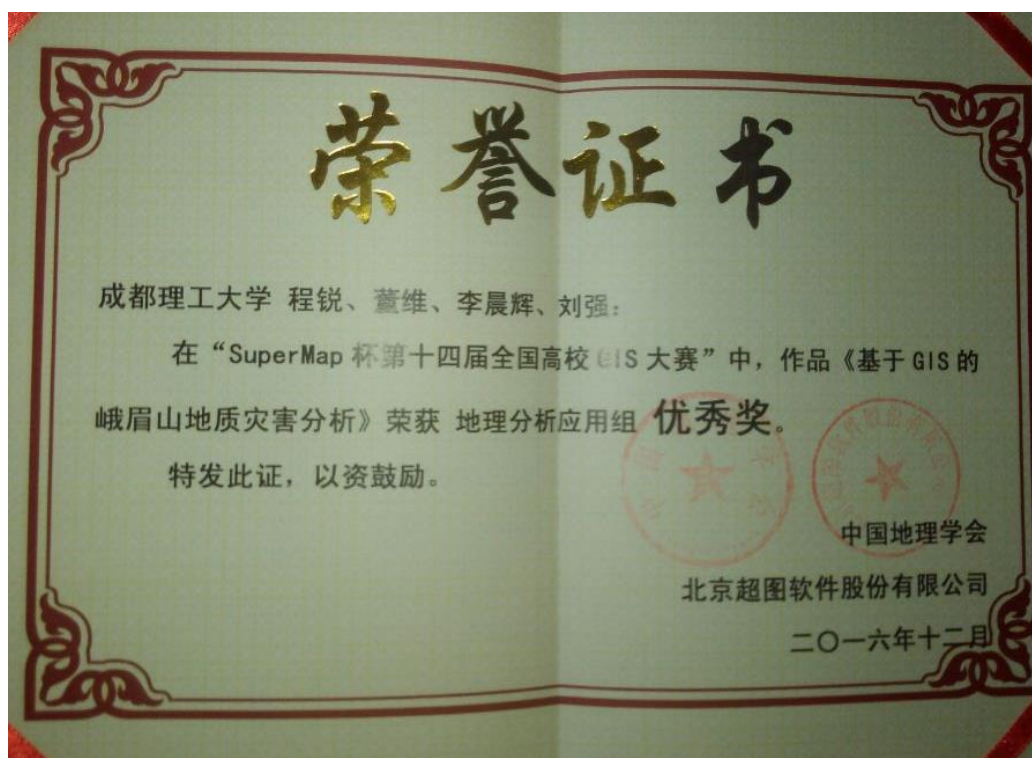 荣誉证书
成都理工大学 程锐、董维、李晨辉、刘强：
在“SuperMap 杯第十四届全国高校 GIS 大赛”中，作品《基于 GIS 的
峨眉山地质灾害分析》荣获 地理分析应用组 优秀奖。
特发此证，以资鼓励。
中国地理学会
北京超图软件股份有限公司
二〇一六年十二月